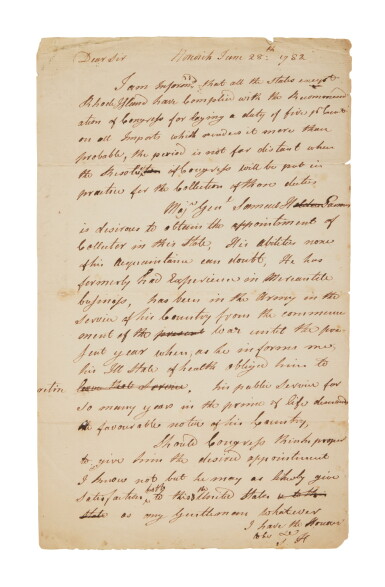 Dear Sir Norwich June 28th 1782
I am Informd that all the States except
Rhode Island have Complied with the Recommend
ation of Congress for laying a duty of five pr Cent
on all Imports which renders it more than
probable, the period is not far distant when
the Resolution of Congress will be put in
practice for the Collection of those duties
Majr Genl Samuel Holden Parsons
is desirous to obtain the appointment of
Collector in this State, His abilities none
of his Acquaintance can doubt, He has
formerly had Experience in Mercantile
business, has been in the Army in the
Service of his Country from the commence
ment of the present War until the pre
sent year when, as he informs me,
his Ill State of health obliged him to
retire have that Service. his public Service for
so many years in the prime of life demands
the favourable notice of his Country,
Should Congress think proper
to give him the desired appointment
I know not but he may as likely give
satisfaction both to the United States & to the
State as any Gentleman whatever
I have the Honour
to be &c
J H